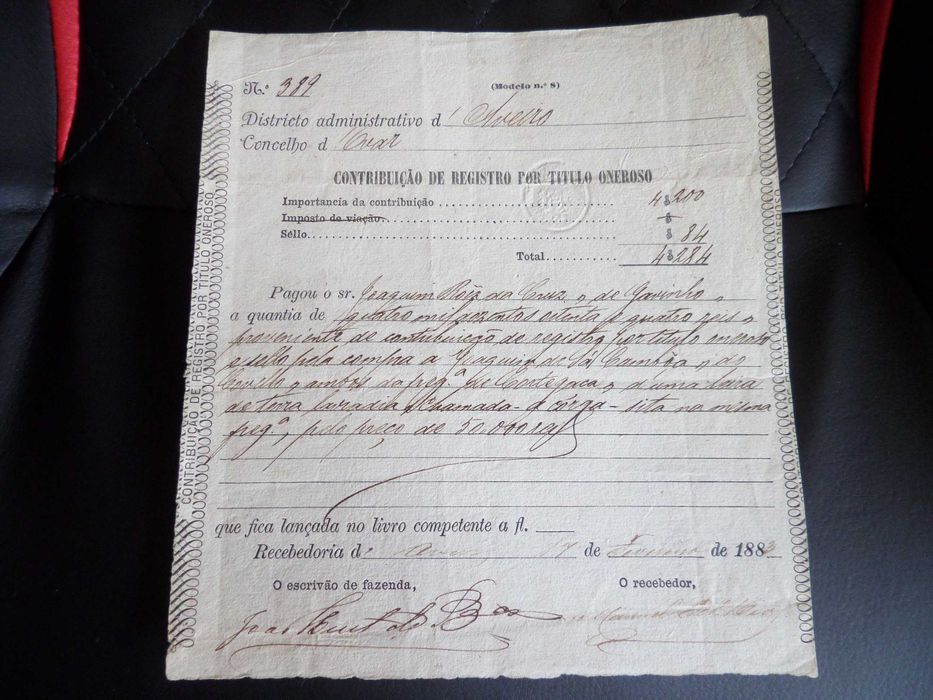 N.º 389
(Modelo n.º 8)
Districto administrativo d' Aveiro
Concelho d' Ovar
CONTRIBUIÇÃO DE REGISTRO POR TITULO ONEROSO
Importancia da contribuição .................... 4$200
Imposto de viação. .................... $
Sêllo .................... $ 84
Total .......... 4$284
Pagou o sr. Joaquim Roiz da Cruz, de Gavinho,
a quantia de quatro mil duzentos oitenta e quatro reis
proveniente de contribuição de registro por titulo oneroso
e sello pela compra a Joaquim de Sá, do
ambos da freg.ª de Cortegaça, d'uma leira
de terra lavradia chamada - a Côrga - sita na mesma
freg.ª, pelo preço de 50.000
que fica lançada no livro competente a fl.
Recebedoria d' Ovar, 17 de Fevereiro de 188
O escrivão de fazenda,
O recebedor,
João
Manoel
CONTRIBUIÇÃO DE REGISTRO POR TITULO ONEROSO